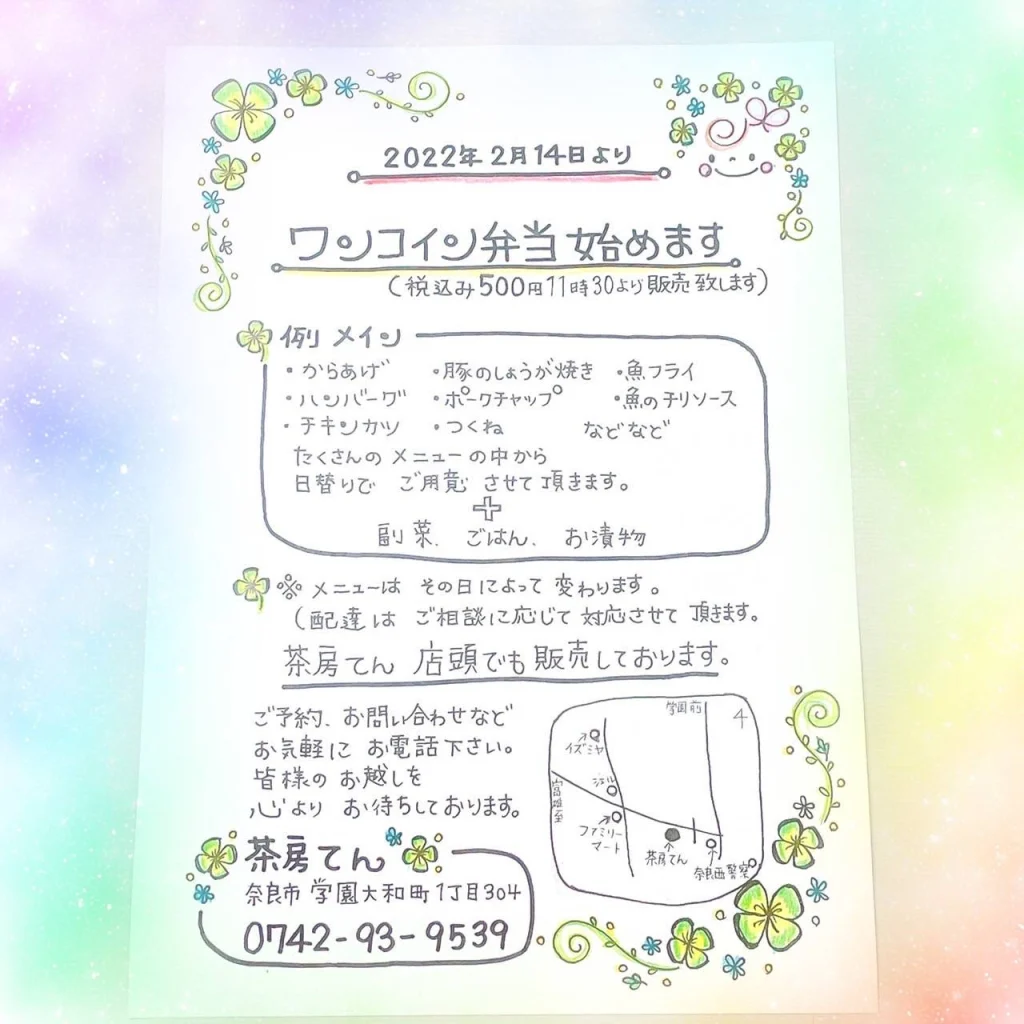 2022年2月14日より
ワンコイン弁当始めます
(税込み500円11時30より販売致します)
例 メイン
・からあげ ・豚のしょうが焼き ・魚フライ
・ハンバーグ ・ポークチャップ ・魚のチリソース
・チキンカツ ・つくね などなど
たくさんの メニューの中から
日替りで ご用意 させて頂きます。
+
副菜、ごはん、お漬物
※メニューは その日によって 変わります。
(配達は ご相談に応じて対応させて 頂きます。
茶房てん 店頭でも販売しております。
ご予約、お問い合わせなど
お気軽に お電話下さい。
皆様の お越しを
心より お待ちしております。
茶房てん
奈良市 学園大和町1丁目304
0742-93-9539
学園前
4
イズミヤ
ファミリー
マート
茶房てん
奈良西警察